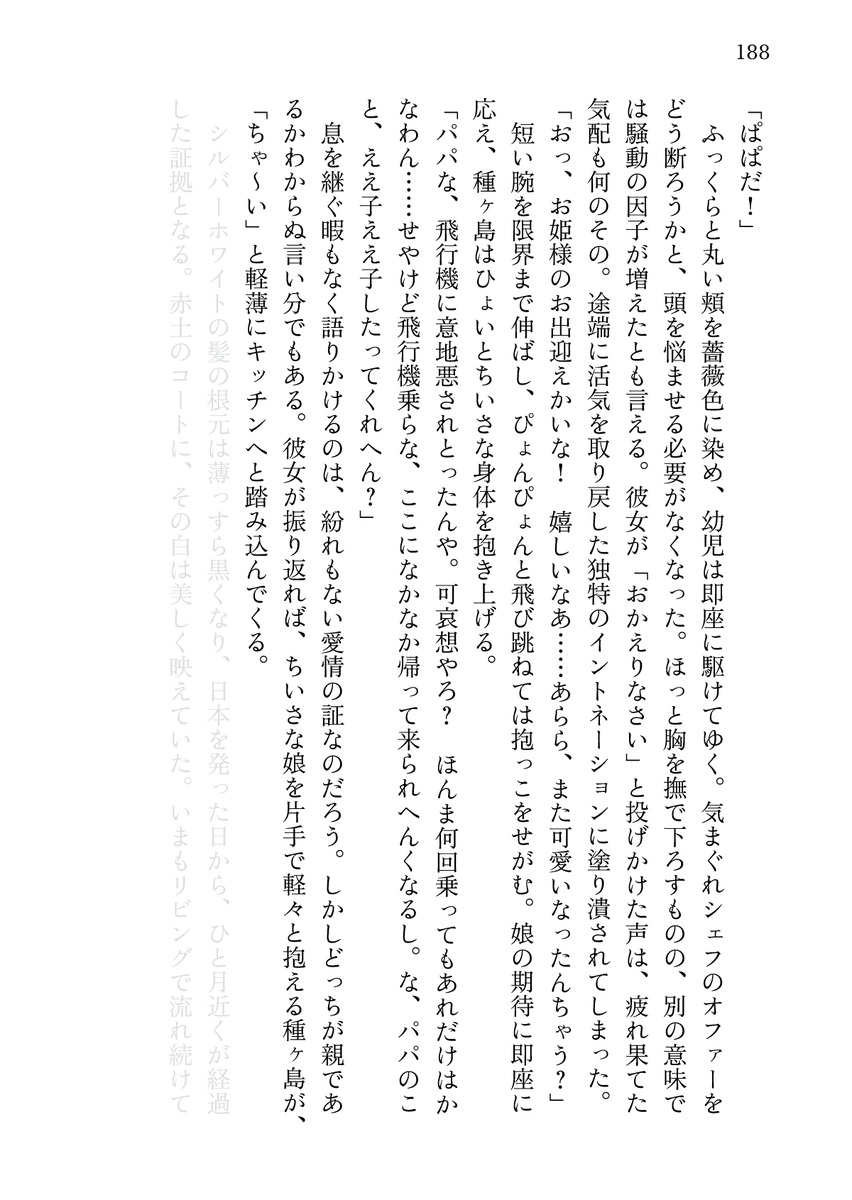 188
「ぱぱだ！」
　ふっくらと丸い頬を薔薇色に染め、幼児は即座に駆けてゆく。気まぐれシェフのオファーを
どう断ろうかと、頭を悩ませる必要がなくなった。ほっと胸を撫で下ろすものの、別の意味で
は騒動の因子が増えたとも言える。彼女が「おかえりなさい」と投げかけた声は、疲れ果てた
気配も何のその。途端に活気を取り戻した独特のイントネーションに塗り潰されてしまった。
「おっ、お姫様のお出迎えかいな！　嬉しいなあ……あらら、また可愛いなったんちゃう？」
　短い腕を限界まで伸ばし、ぴょんぴょんと飛び跳ねては抱っこをせがむ。娘の期待に即座に
応え、種ヶ島はひょいとちいさな身体を抱き上げる。
「パパな、飛行機に意地悪されとったんや。可哀想やろ？　ほんま何回乗ってもあれだけはか
なわん……せやけど飛行機乗らな、ここになかなか帰って来られへんくなるし。な、パパのこ
と、ええ子ええ子したってくれへん？」
　息を継ぐ暇もなく語りかけるのは、紛れもない愛情の証なのだろう。しかしどっちが親であ
るかわからぬ言い分でもある。彼女が振り返れば、ちいさな娘を片手で軽々と抱える種ヶ島が、
「ちゃ〜い」と軽薄にキッチンへと踏み込んでくる。
　シルバーホワイトの髪の根元は薄っすら黒くなり、日本を発った日から、ひと月近くが経過
した証拠となる。赤土のコートに、その白は美しく映えていた。いまもリビングで流れ続けて